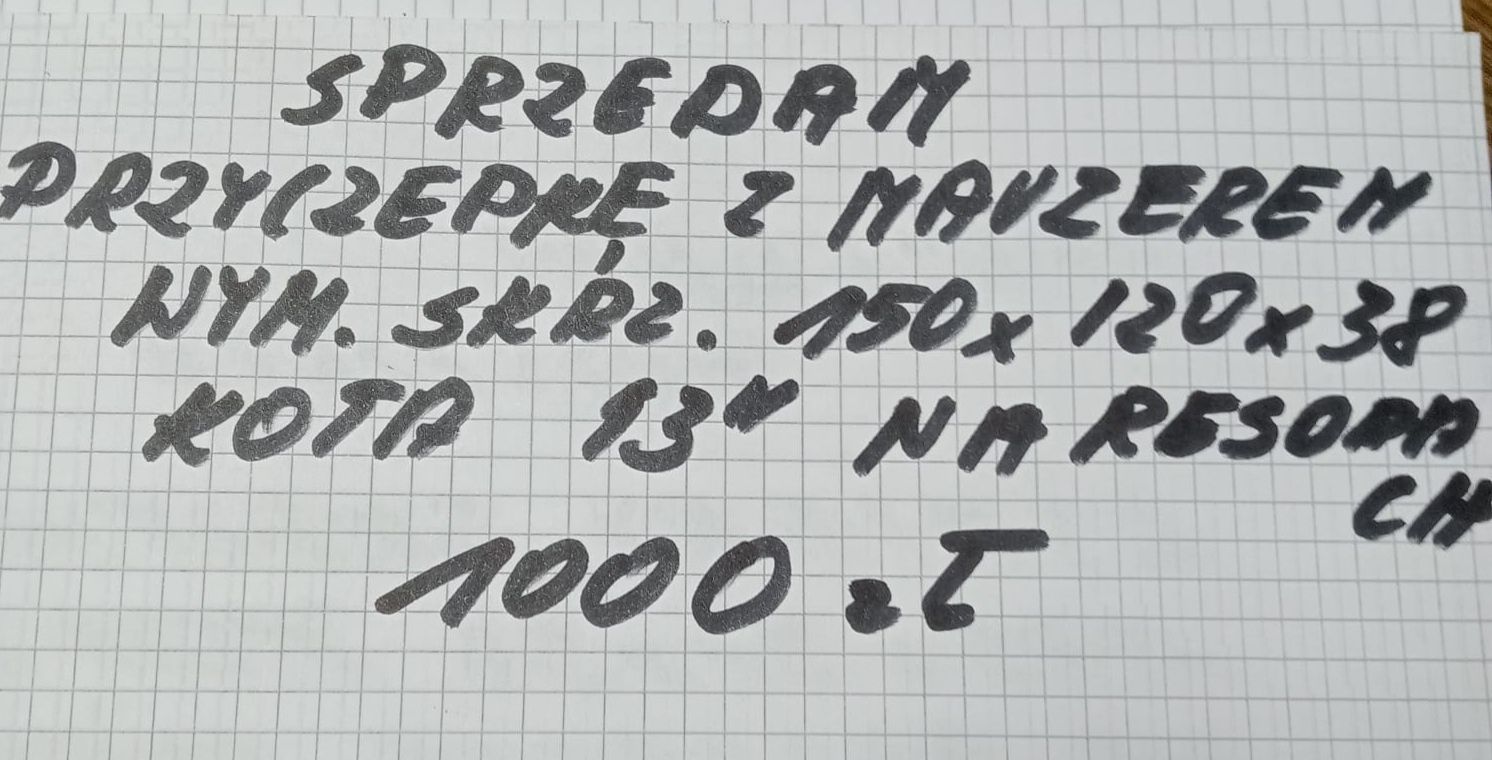 SPRZEDAM
PRZYCZEPKĘ Z MAUZEREM
WYM. SKRZ. 150x120x38
KOŁA 13" NA RESORA
CH
1000 zł